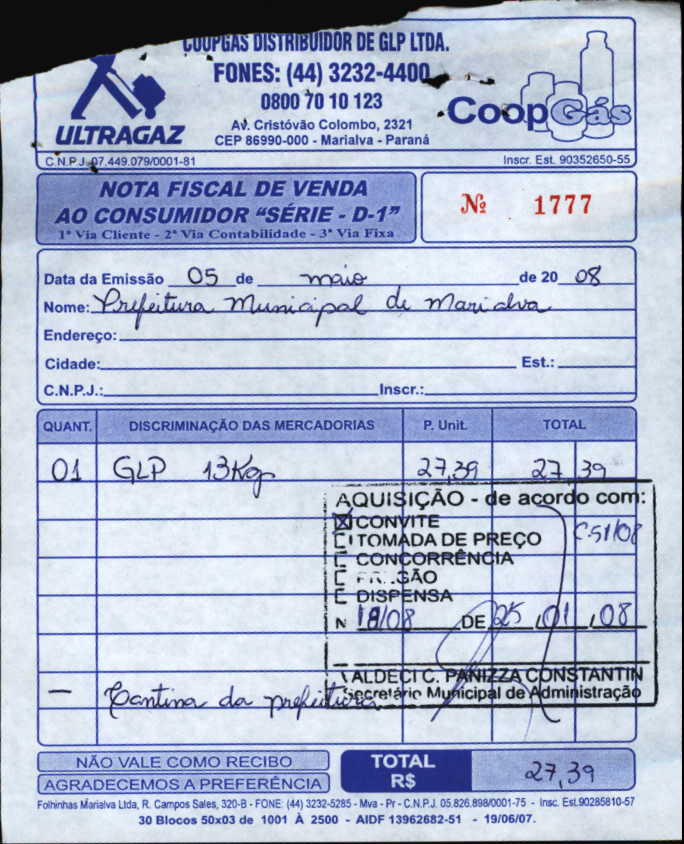 COOPGÁS DISTRIBUIDOR DE GLP LTDA.
FONES: (44) 3232-4400
0800 70 10 123
Av. Cristóvão Colombo, 2321
CEP 86990-000 - Marialva - Paraná
ULTRAGAZ
CoopGás
C.N.P.J. 07.449.079/0001-81
Inscr. Est. 90352650-55
NOTA FISCAL DE VENDA
AO CONSUMIDOR “SÉRIE - D-1”
1ª Via Cliente - 2ª Via Contabilidade - 3ª Via Fixa
Nº 1777
Data da Emissão 05 de maio de 20 08
Nome: Prefeitura Municipal de Marialva
Endereço:
Cidade: Est.:
C.N.P.J.: Inscr.:
QUANT. DISCRIMINAÇÃO DAS MERCADORIAS P. Unit. TOTAL
01 GLP 13Kg 27,39 27 39
AQUISIÇÃO - de acordo com:
CONVITE
C-51/08
TOMADA DE PREÇO
CONCORRÊNCIA
DISPENSA
N 18/08 DE 25 / 01 / 08
VALDECI C. PANIZZA CONSTANTIN
Secretário Municipal de Administração
— Cantina da prefeitura
NÃO VALE COMO RECIBO
AGRADECEMOS A PREFERÊNCIA
TOTAL
R$
27,39
Folhinhas Marialva Ltda, R. Campos Sales, 320-B - FONE: (44) 3232-5285 - Mva - Pr - C.N.P.J. 05.826.898/0001-75 - Insc. Est.90285810-57
30 Blocos 50x03 de 1001 À 2500 - AIDF 13962682-51 - 19/06/07.